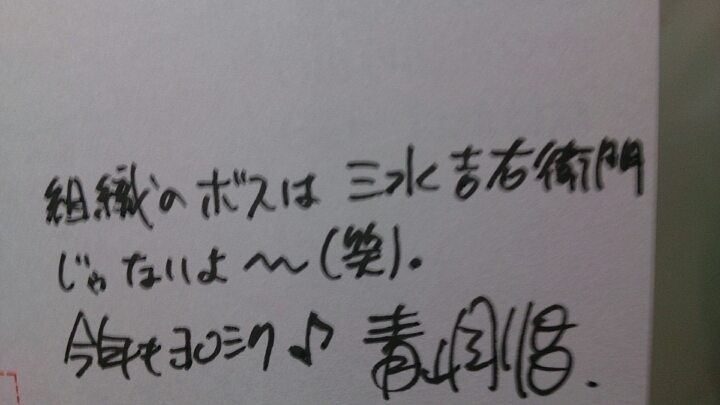 組織のボスは 三水吉右衛門
じゃないよ〜(笑)。
今年もヨロシク♪ 青山剛昌.